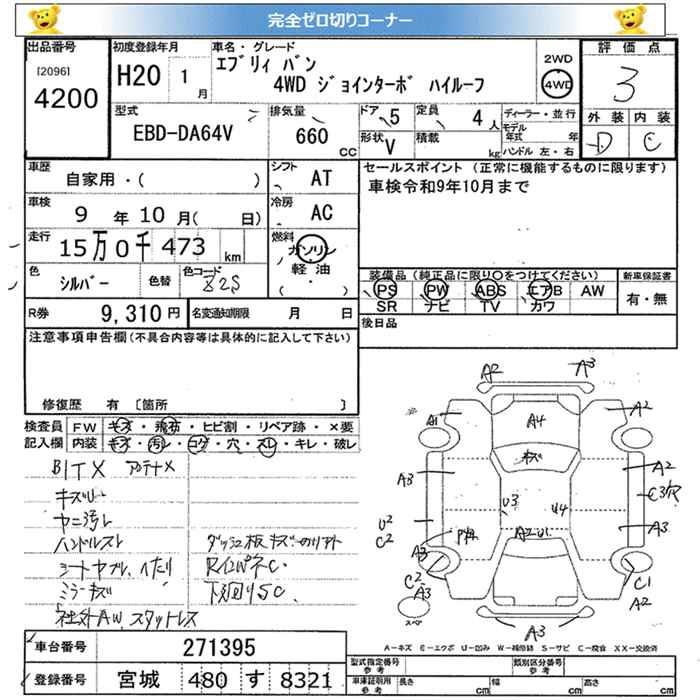 完全ゼロ切りコーナー
出品番号
[2096]
4200
初度登録年月
H20 1月
車名・グレード
エブリィ バン
4WD ジョインターボ ハイルーフ
2WD
4WD
評価点
3
外装 内装
D C
型式
EBD-DA64V
排気量
660 CC
ドア 5
定員 4人
形状 V
積載 kg
ディーラー・並行
モデル年式 年
ハンドル 左・右
車歴
自家用・( )
シフト AT
車検
9年10月( 日)
冷房 AC
走行
15万0千473 km
燃料
ガソリン
軽油
( )
色
シルバー
色替
色コード
Z2S
R券 9,310円
名変通知期限 月 日
セールスポイント(正常に機能するものに限ります)
車検令和9年10月まで
装備品(純正品に限り○をつけてください)
PS PW ABS エアB AW
SR ナビ TV カワ
新車保証書
有・無
後日品
注意事項申告欄(不具合内容等は具体的に記入して下さい)
修復歴 有 〔箇所 〕
検査員記入欄
FW キズ・飛石・ヒビ割・リペア跡・×要
内装 キズ・汚レ・コゲ・穴・スレ・キレ・破レ
BITX アンテナX
ヤニ汚レ
ハンドルスレ
ミラーキズ
社外AW スタッドレス
下廻りSC
A2 A3
A1 A4 A2
キズ
A3 A2
C3穴
U3 U4
U2 A3
C2
A2 U1
A3
C2 C1
A3 A2
A3
スペア
A=キズ E=エクボ U=凹み W=補修跡 S=サビ C=腐食 XX=交換済
車台番号 271395
登録番号 宮城 480 す 8321
型式指定番号
参考
類別区分番号
参考
車庫証明用
参考
長さ cm 幅 cm 高さ cm